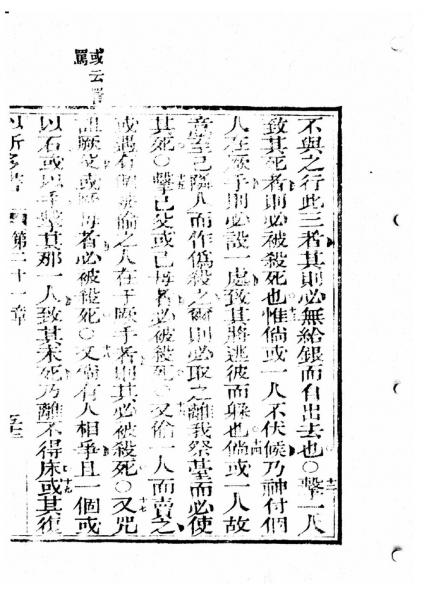 或云
罵
不與之行此三者其則必無給銀而自出去也○擊一人
十二
致其死者則必被殺死也惟倘或一人不伏候乃神付個
十三
人在厥手則必設一處致其將逃彼而躲也倘或一人故
十四
意至己隣人而作僞殺之爾則必取之離我祭臺而必使
其死○擊己父或己母者必被殺死○又偷一人而賣之
或遇有人在于厥手者則其必被殺死○又咒
十七
詛厥父或厥母者必被殺死○又倘有人相爭且一個或
以石或以手擊其那一人致其未死乃離不得床或其復
十九
以所多書 第二十一章